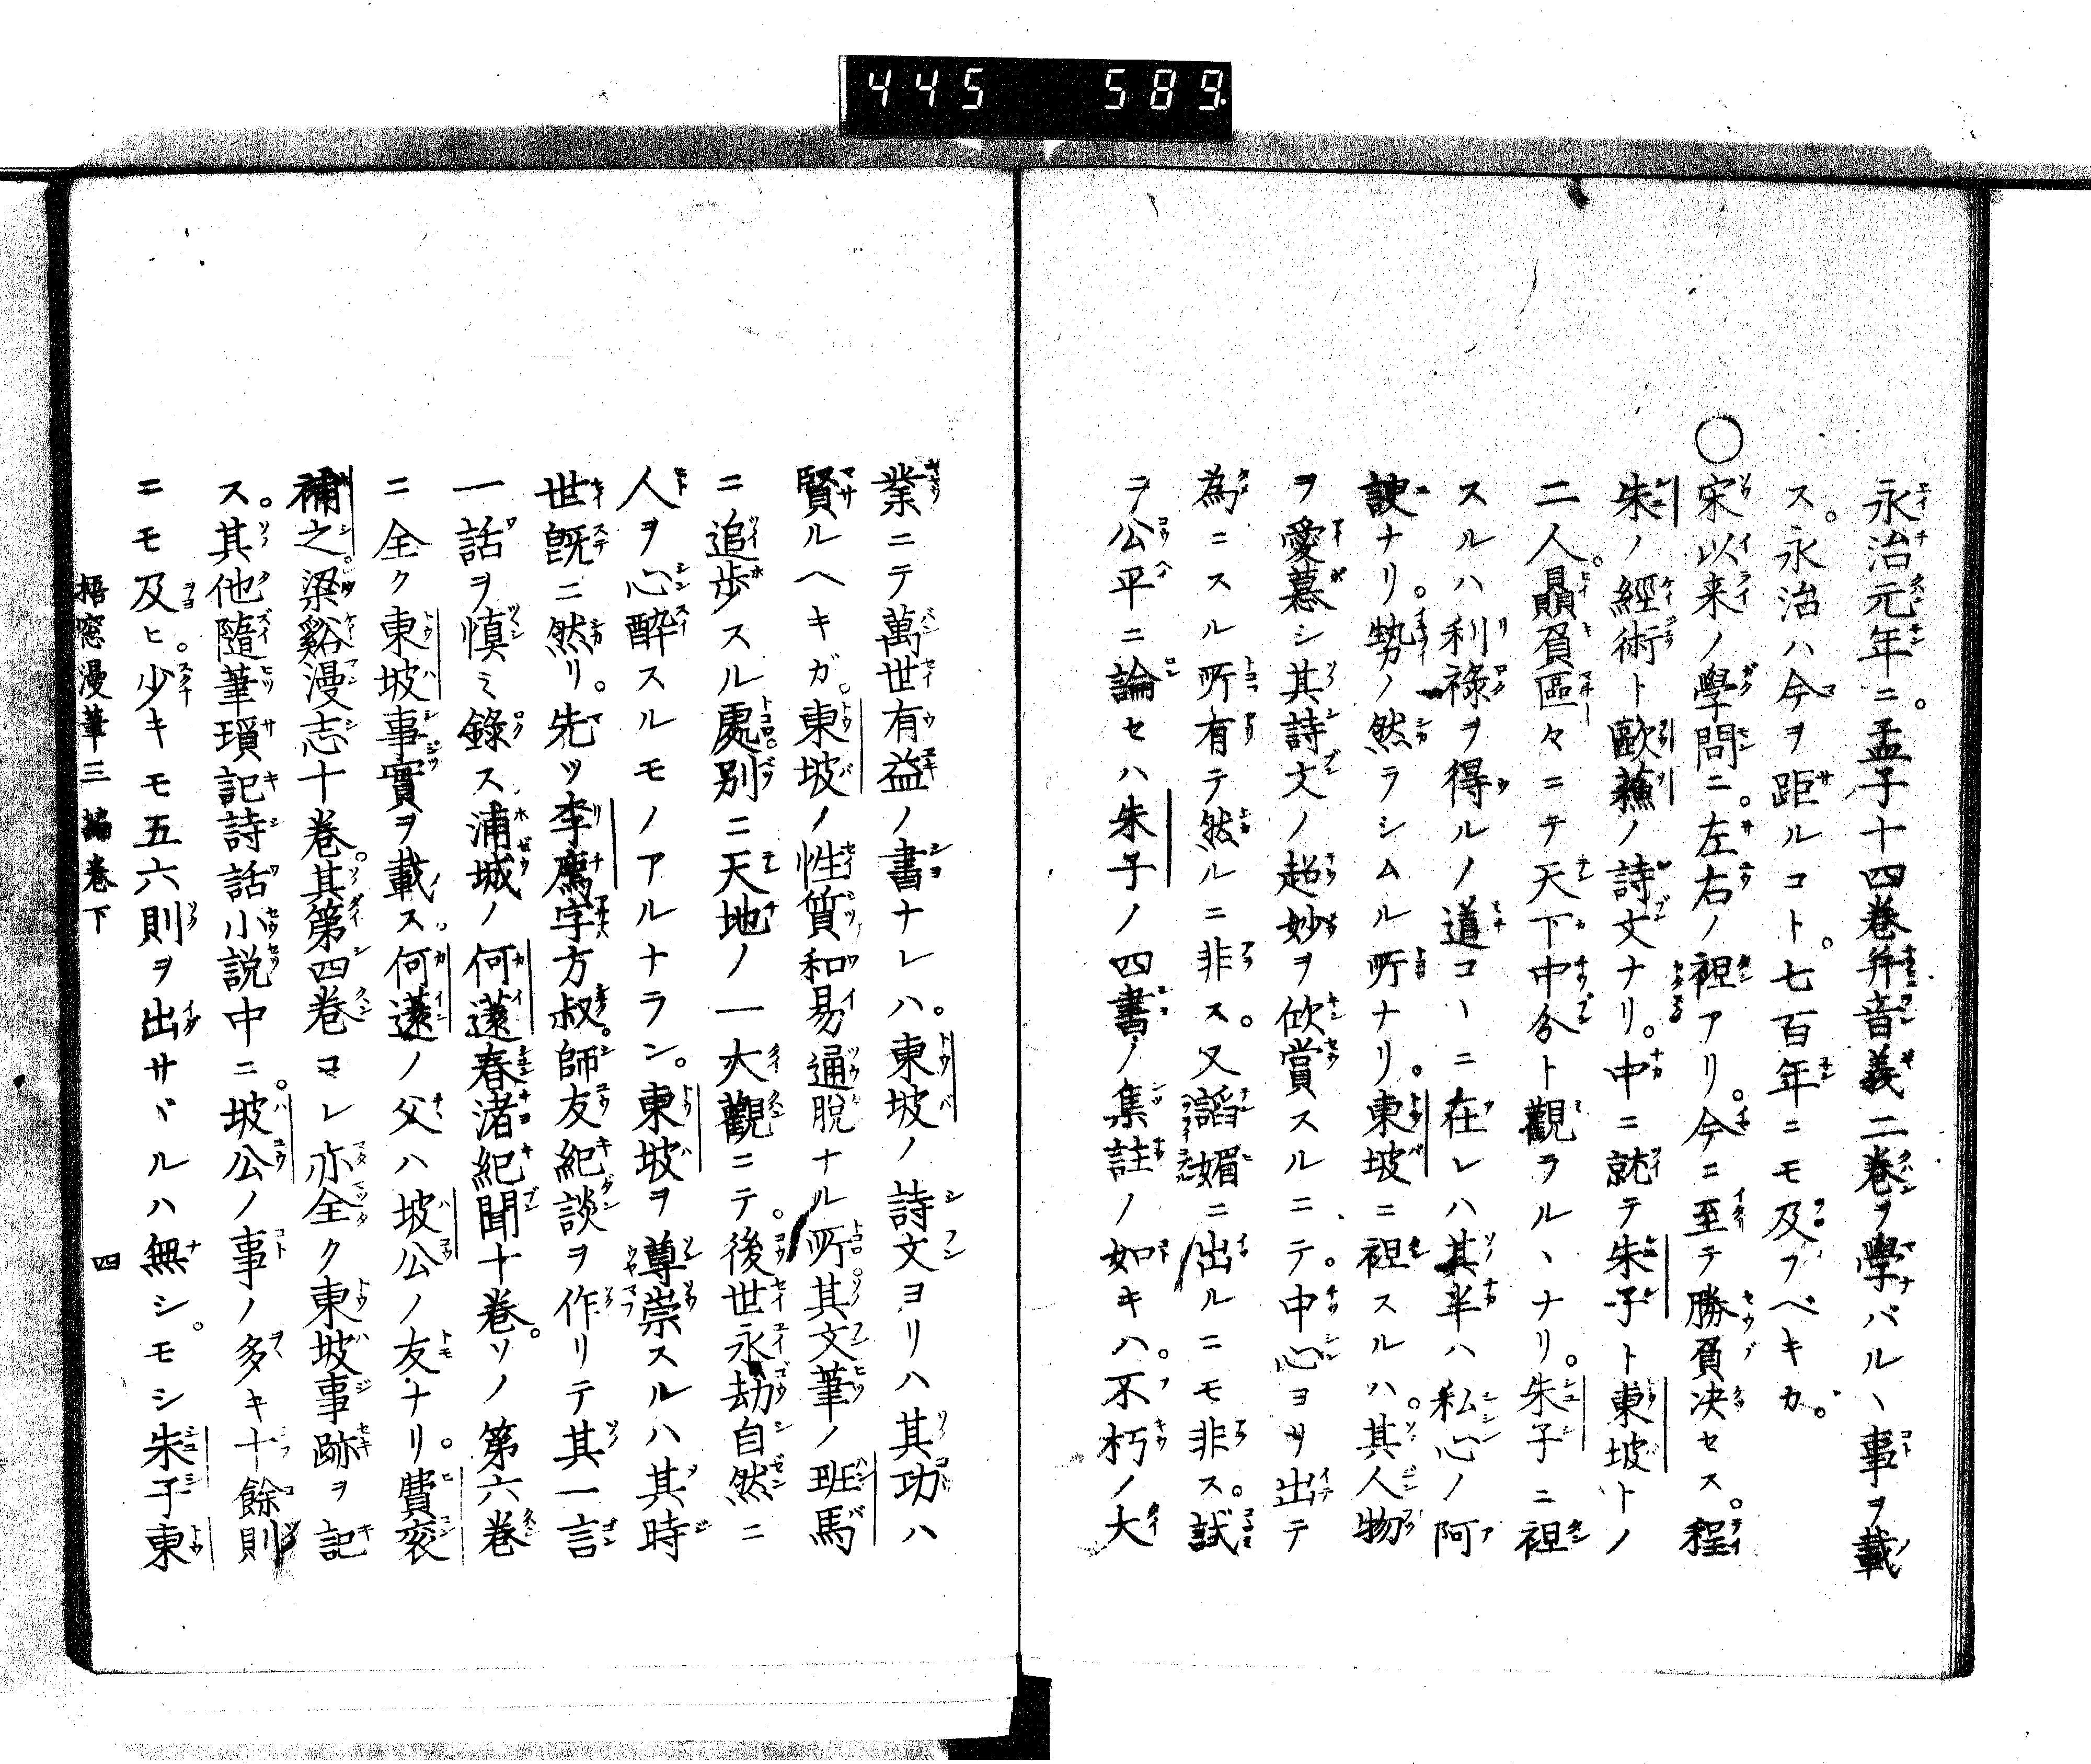 445 589
永治元年ニ。孟子十四巻并音義二巻ヲ學バルヽ事ヲ載
ス。永治ハ今ヲ距ルコト。七百年ニモ及フベキカ。
○宋以来ノ學問ニ。左右ノ袒アリ。今ニ至テ勝負决セス。程
朱ノ經術ト歐蘓ノ詩文ナリ。中ニ就テ朱子ト東坡トノ
二人。贔屓區々ニテ天下中分ト觀ラルヽナリ。朱子ニ袒
スルハ利祿ヲ得ルノ道コヽニ在レハ其半ハ私心ノ阿
諛ナリ。勢ノ然ラシムル所ナリ。東坡ニ袒スルハ。其人物
ヲ愛慕シ其詩文ノ超妙ヲ欣賞スルニテ。中心ヨリ出テ
為ニスル所有テ然ルニ非ス。又諂媚ニ出ルニモ非ス。試
ニ公平ニ論セハ朱子ノ四書ノ集註ノ如キハ。不朽ノ大
業ニテ萬世有益ノ書ナレハ。東坡ノ詩文ヨリハ其功ハ
賢ルヘキガ。東坡ノ性質和易通脫ナル所。其文筆ノ班馬
ニ追歩スル處。別ニ天地ノ一大觀ニテ。後世永劫自然ニ
人ヲ心醉スルモノアルナラン。東坡ヲ尊崇スルハ其時
世既ニ然リ。先ツ李廌字方叔。師友紀談ヲ作リテ其一言
一話ヲ慎ミ錄ス浦城ノ何薳春渚紀聞十巻。ソノ第六巻
ニ全ク東坡事實ヲ載ス。何薳ノ父ハ坡公ノ友ナリ。費袞
補之。梁谿漫志十巻。其第四巻コレ亦全ク東坡事跡ヲ記
ス。其他隨筆瑣記詩話小説中ニ。坡公ノ事ノ多キ十餘則
ニモ及ヒ。少キモ五六則ヲ出サヾルハ無シ。モシ朱子東
梧窓漫筆三編巻下 四